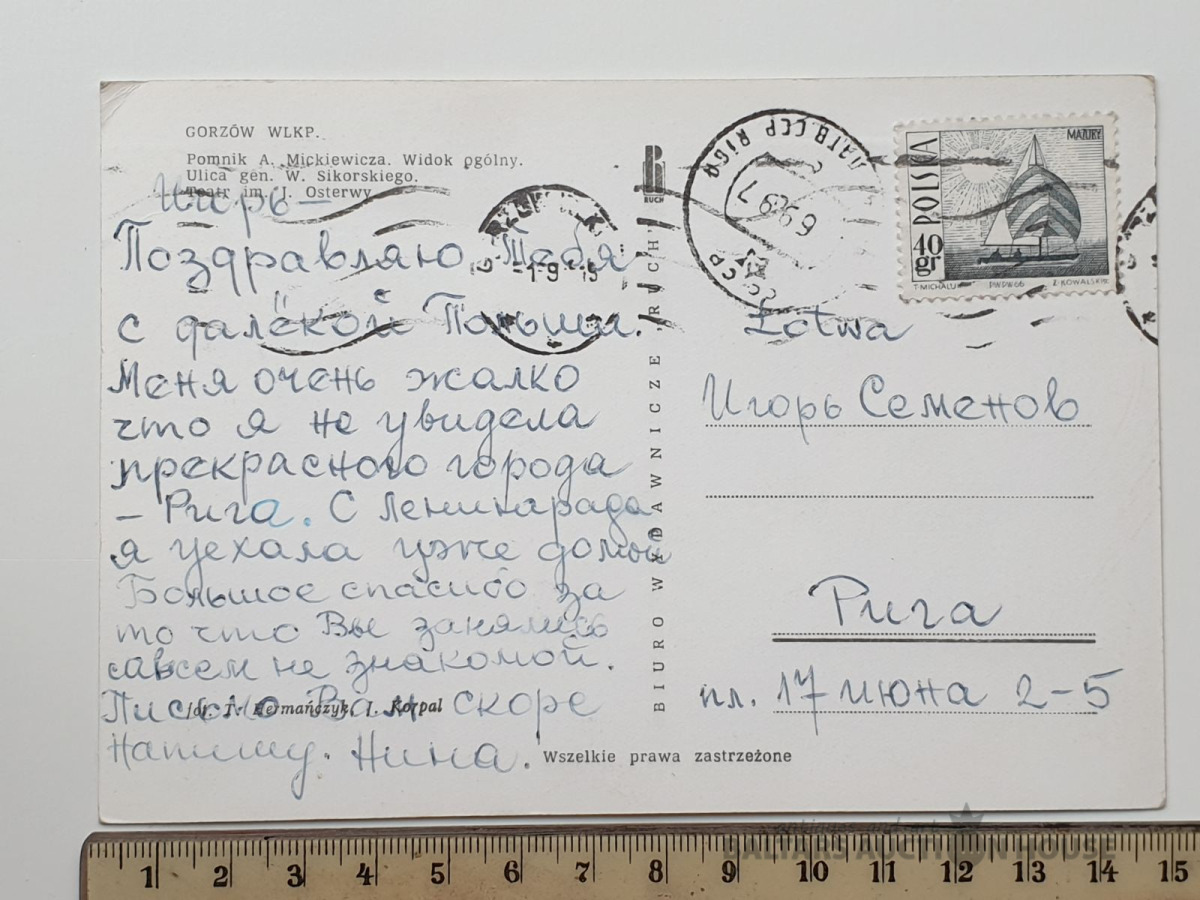 GORZÓW WLKP.
Pomnik A. Mickiewicza. Widok ogólny.
Ulica gen. W. Sikorskiego.
Teatr im. J. Osterwy
Игорь —
Поздравляю Тебя
с далёкой Польши.
Меня очень жалко
что я не увидела
прекрасного города
– Рига. С Ленинарада
я уехала уже домой
Большое спасибо за
то что Вы занялись
савсем не знакомой.
Письмо Вам скоре
Напишу. Нина.
fot. J. Hermańczyk, I. Korpal
Wszelkie prawa zastrzeżone
BIURO WYDAWNICZE „RUCH”
RUCH
POLSKA
MAZURY
40
gr
T. MICHALUK PWPW 66 Z. KOWALSKI
RIGA
-1 9
Łotwa
Игорь Семенов
Рига
пл. 17 июня 2–5
BALTARS AUCTION HOUSE
1 2 3 4 5 6 7 8 9 10 11 12 13 14 15